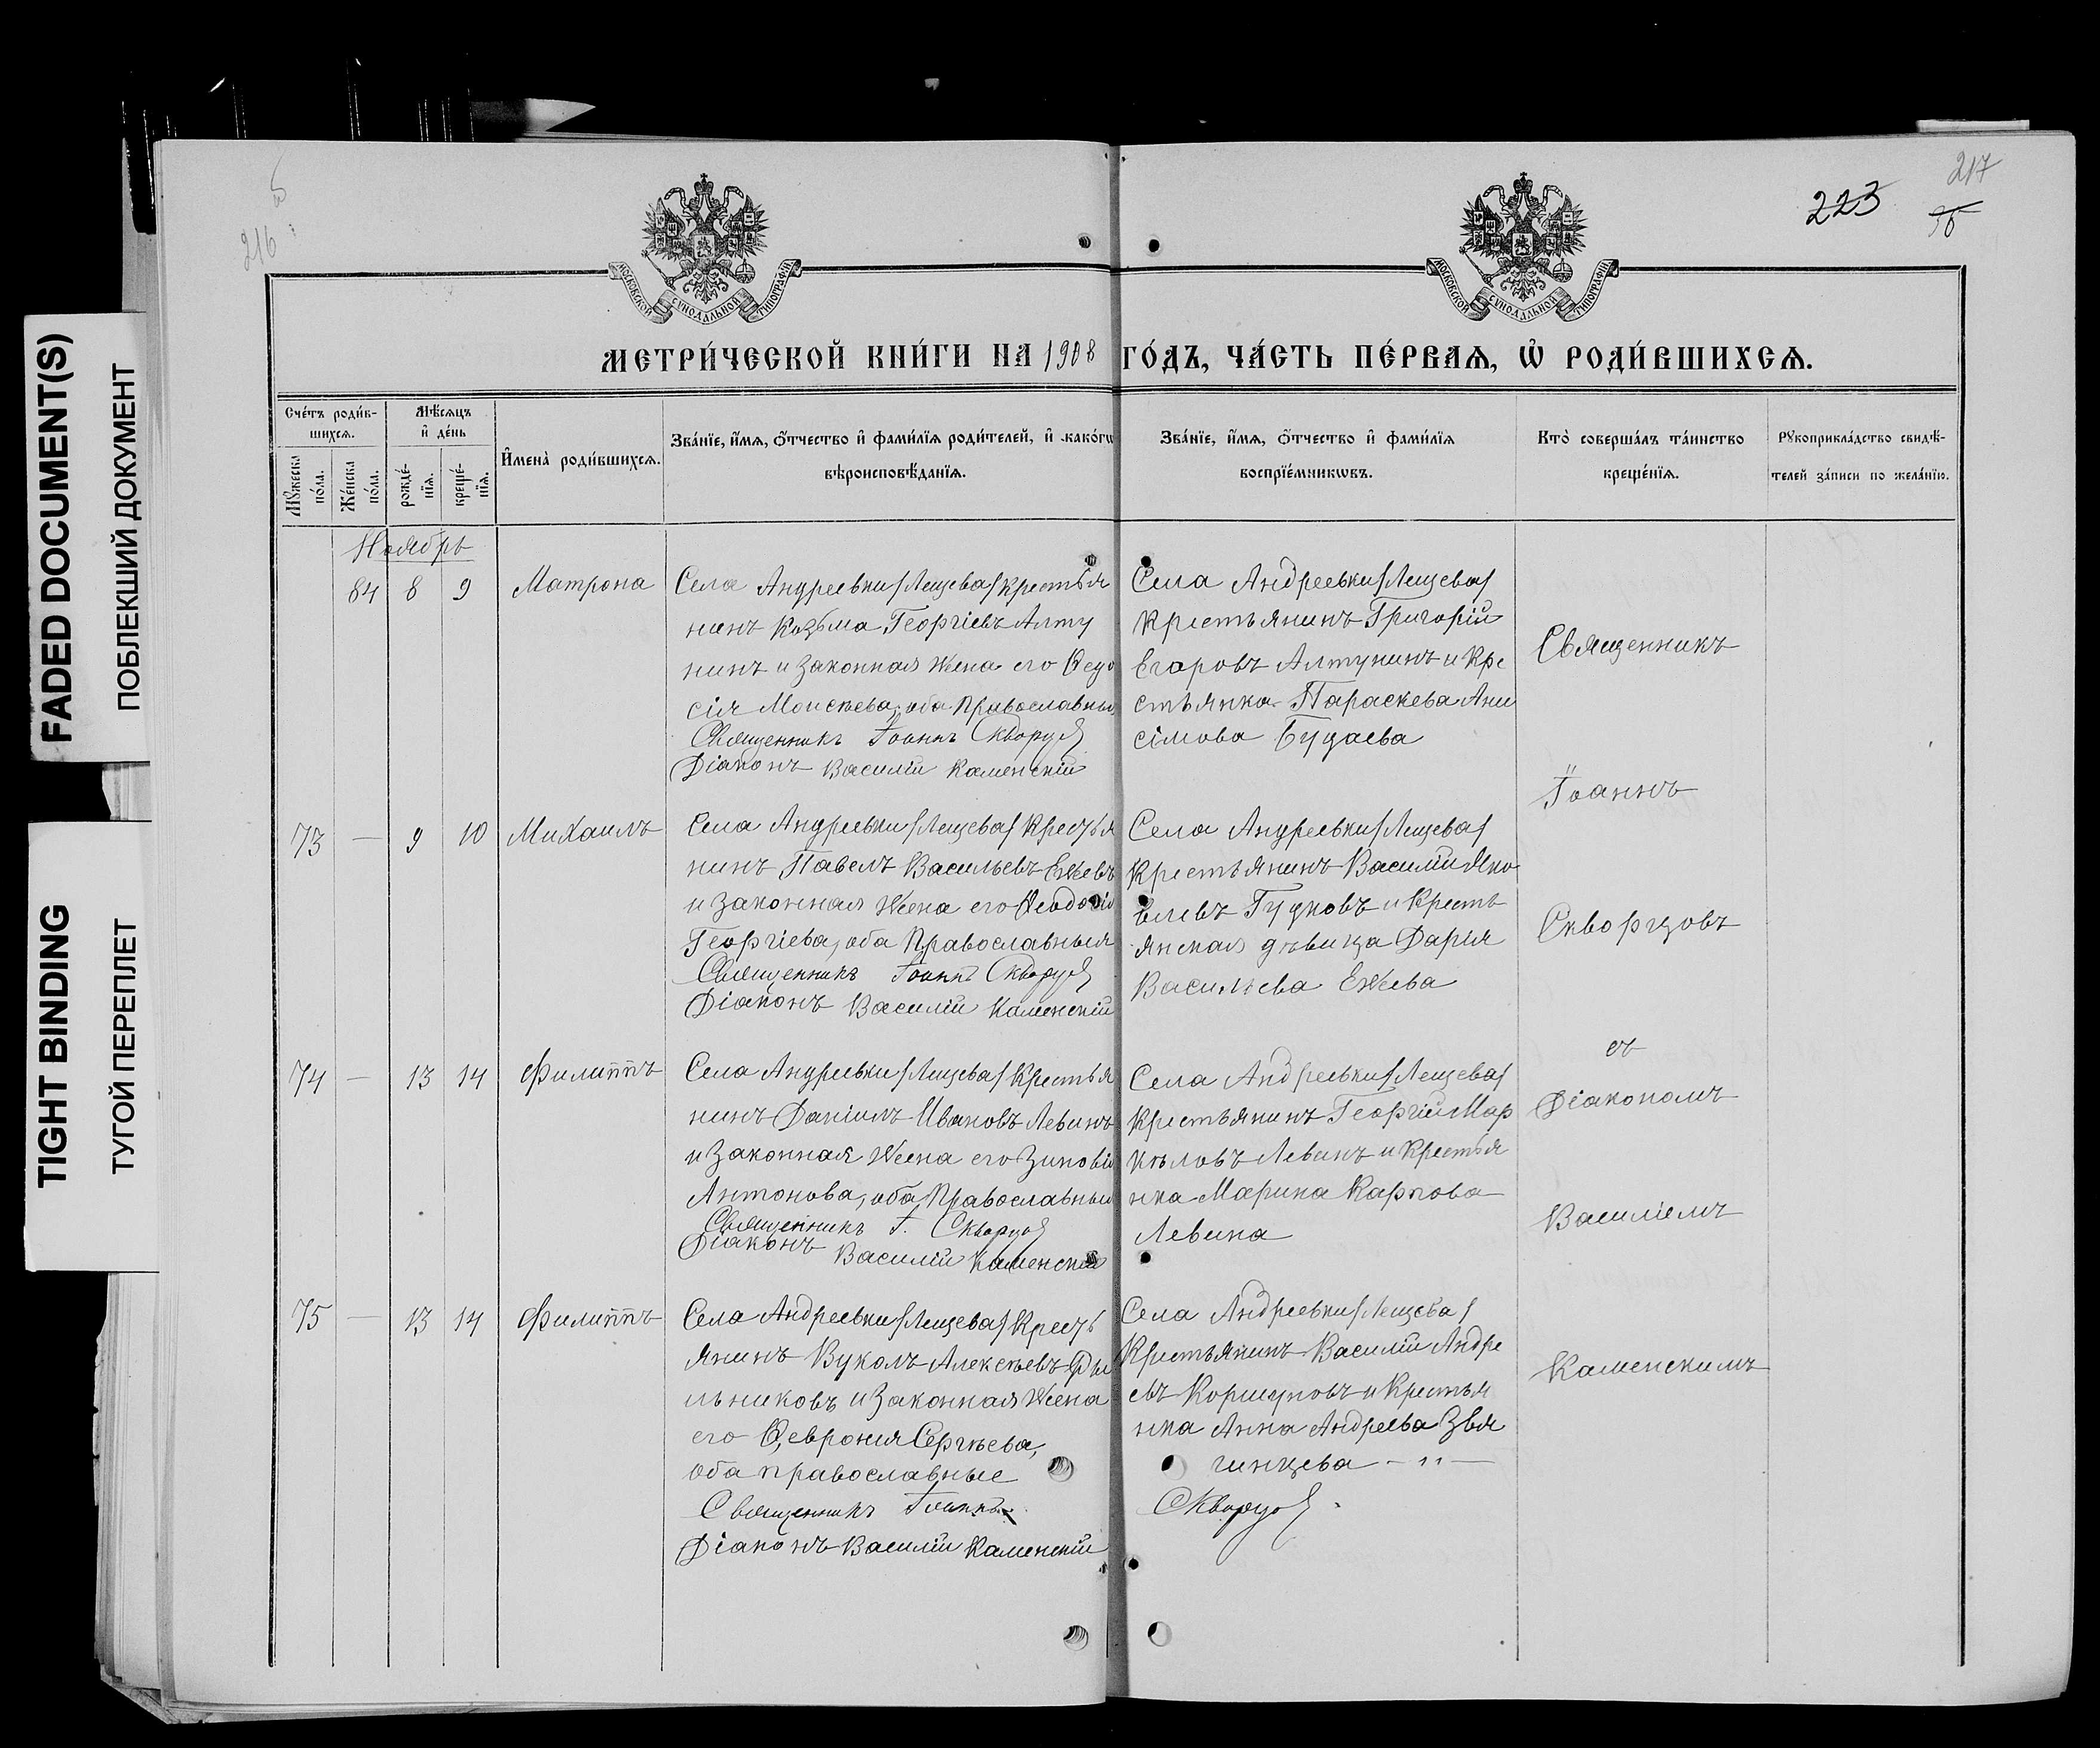 FADED DOCUMENT(S)
ПОБЛЕКШИЙ ДОКУМЕНТ
TIGHT BINDING
ТУГОЙ ПЕРЕПЛЕТ
216
217
223
МОСКОВСКОЙ СУНОДАЛЬНОЙ ТИПОГРАФІИ
МОСКОВСКОЙ СУНОДАЛЬНОЙ ТИПОГРАФІИ
МЕТРИ́ЧЕСКОЙ КНИ́ГИ НА 1908 ГО́ДЪ, ЧА́СТЬ ПЕ́РВАѦ, Ѡ҆ РОДИ́ВШИХСѦ.
Сче́тъ роди́в-
шихсѧ.
Мꙋ́жеска
по́ла.
Же́нска
по́ла.
Мѣ́сѧцъ
и҆ де́нь
рожде́-
нїѧ.
креще́-
нїѧ.
И҆мена̀ роди́вшихсѧ.
Зва́нїе, и҆́мѧ, ѻ҆́тчество и҆ фами́лїѧ роди́телей, и҆ како́гѡ
вѣроисповѣ́данїѧ.
Зва́нїе, и҆́мѧ, ѻ҆́тчество и҆ фами́лїѧ
воспрїе́мникѡвъ.
Кто̀ соверша́лъ та́инство
креще́нїѧ.
Рꙋкоприкла́дство свидѣ́-
телей за́писи по жела́нїю.
Ноябрь
84 8 9 Матрона
Села Андреевки/Лещева/крестья
нинъ Козьма Георгіевъ Алту
нинъ и законная жена его Ѳедо
сія Моисеева, оба Православные
Священникъ Іоаннъ Скворцов
Діаконъ Василій Каменскій
Села Андреевки/Лещева/
Крестьянинъ Григорій
Егоровъ Алтунинъ и Кре
стьянка Параскева Ани
сімова Будаева
73 — 9 10 Михаилъ
Села Андреевки/Лещева/ Крестья
нинъ Павелъ Васильевъ Ежевъ
и законная жена его Ѳеодосія
Георгіева, оба Православныя
Священникъ Іоаннъ Скворцов
Діаконъ Василій Каменскій
Села Андреевки/Лещева/
Крестьянинъ Василій Яко
влевъ Гудковъ и Кресть
янская дѣвица Дарія
Васильева Ежева
74 — 13 14 Филиппъ
Села Андреевки/Лещева/ Крестья
нинъ Даніилъ Ивановъ Левинъ
и законная жена его Зиновія
Антонова, оба Православныя
Священникъ І. Скворцов
Діаконъ Василій Каменскій
Села Андреевки/Лещева/
Крестьянинъ Георгій Мар
кѣловъ Левинъ и Крестья
нка Марина Карпова
Левина
75 — 13 14 Филиппъ
Села Андреевки/Лещева/ Кресть
янинъ Вуколъ Алексѣевъ Ры
льниковъ и законная жена
его Ѳеврония Сергѣева,
оба православные
Священникъ Іоаннъ
Діаконъ Василій Каменскій
Села Андреевки/Лещева/
Крестьянинъ Василій Андре
евъ Коршуновъ и Крестья
нка Анна Андреева Звя
гинцева — " —
Скворцов.
Священникъ
Іоаннъ
Скворцовъ
съ
Діакономъ
Василіемъ
Каменскимъ